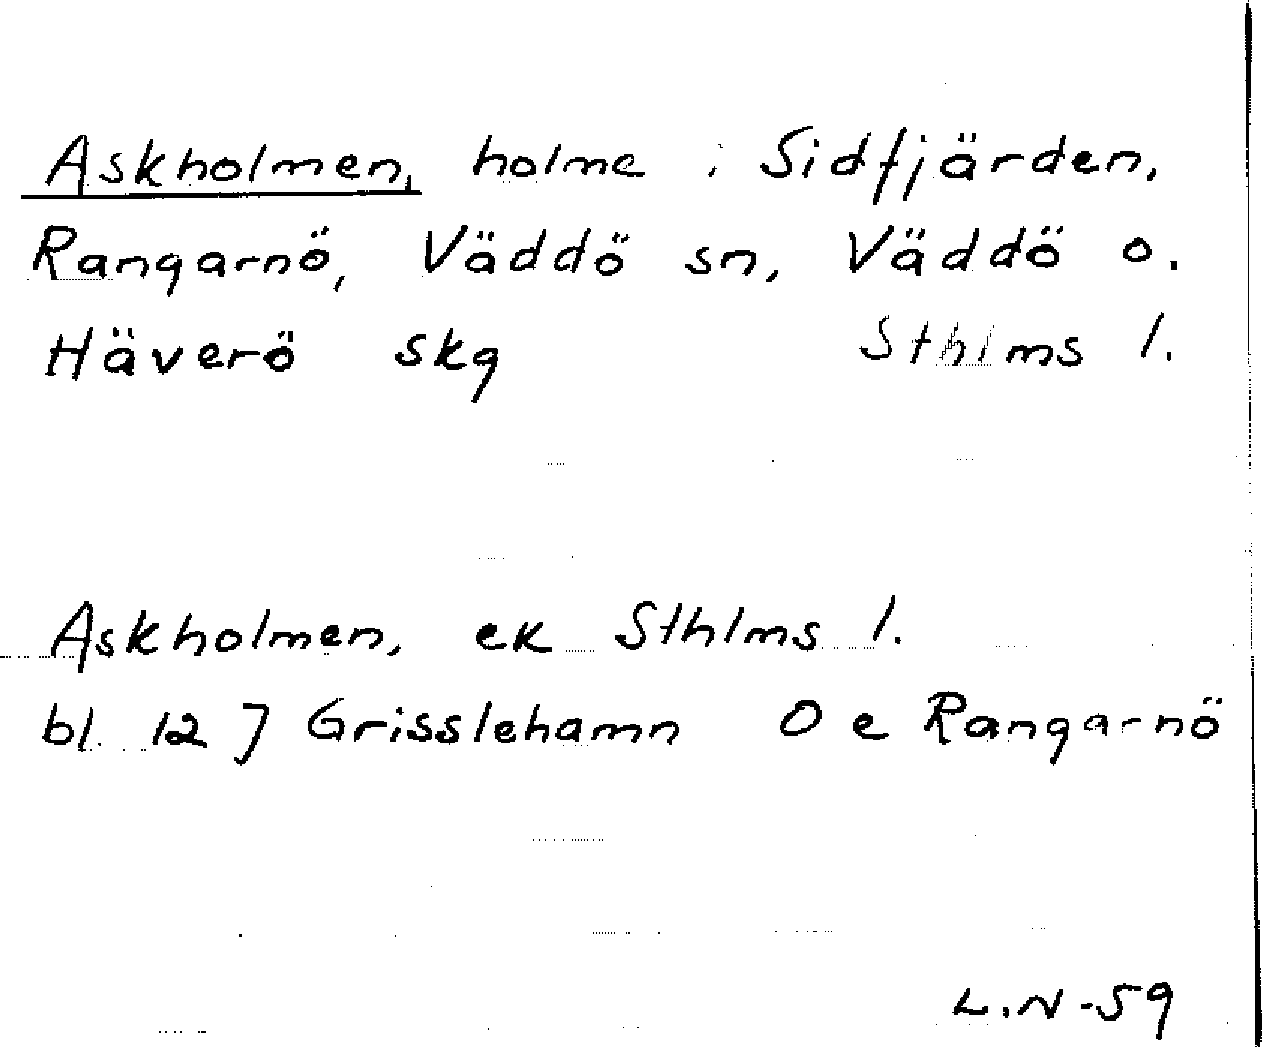 Askholmen, holme i Sidfjärden,
Rangarnö, Väddö sn, Väddö o.
Häverö skg Sthlms l.
Askholmen, ek Sthlms l.
bl. 12 J Grisslehamn O e Rangarnö
L.N -59